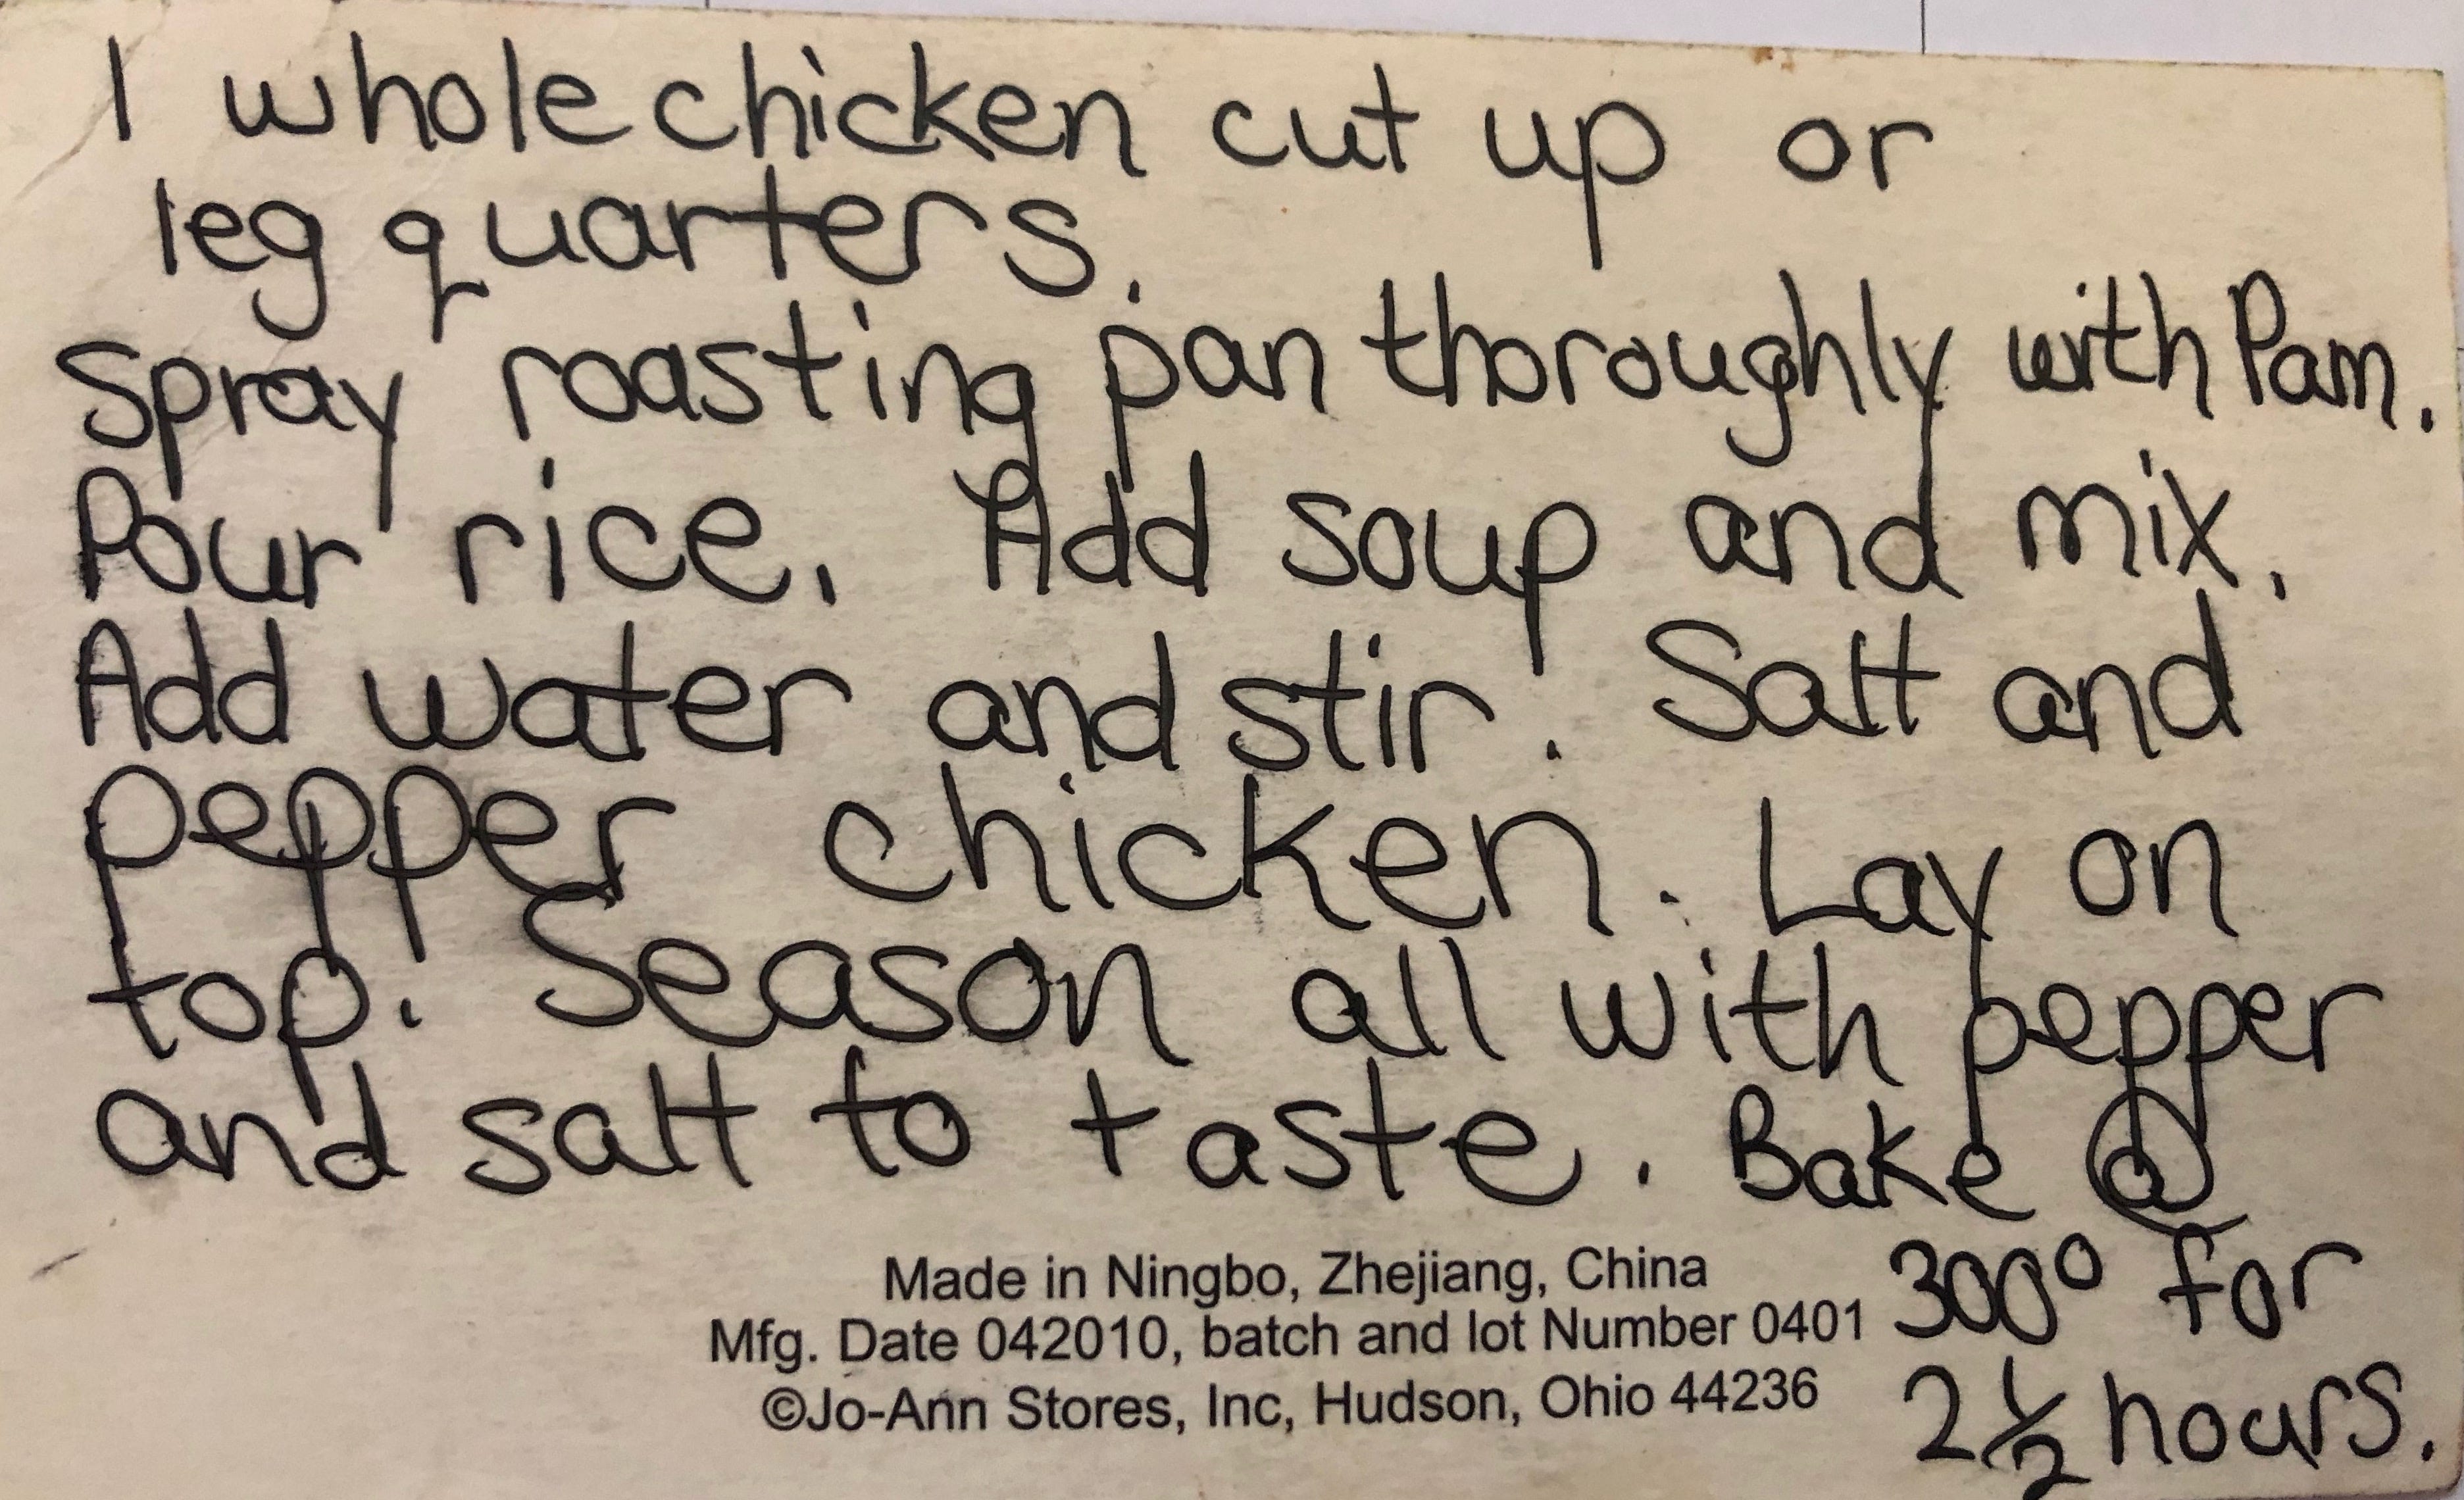 1 whole chicken cut up or
leg quarters.
Spray roasting pan thoroughly with Pam.
Pour rice. Add soup and mix.
Add water and stir. Salt and
pepper chicken. Lay on
top. Season all with pepper
and salt to taste. Bake @
300° for
2 1/2 hours.
Made in Ningbo, Zhejiang, China
Mfg. Date 042010, batch and lot Number 0401
©Jo-Ann Stores, Inc, Hudson, Ohio 44236